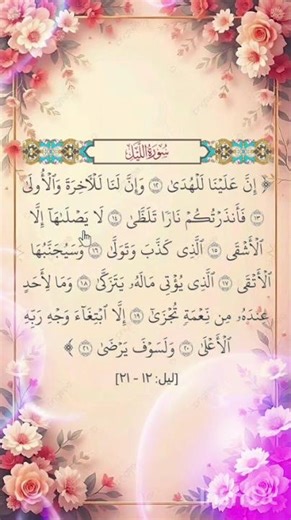 سُورَةُ اللَّيْلِ
﴿ إِنَّ عَلَيْنَا لَلْهُدَىٰ ١٢ وَإِنَّ لَنَا لَلْآخِرَةَ وَالْأُولَىٰ
١٣ فَأَنذَرْتُكُمْ نَارًا تَلَظَّىٰ ١٤ لَا يَصْلَاهَا إِلَّا
الْأَشْقَى ١٥ الَّذِي كَذَّبَ وَتَوَلَّىٰ ١٦ وَسَيُجَنَّبُهَا
الْأَتْقَى ١٧ الَّذِي يُؤْتِي مَالَهُ يَتَزَكَّىٰ ١٨ وَمَا لِأَحَدٍ
عِندَهُ مِن نِّعْمَةٍ تُجْزَىٰ ١٩ إِلَّا ابْتِغَاءَ وَجْهِ رَبِّهِ
الْأَعْلَىٰ ٢٠ وَلَسَوْفَ يَرْضَىٰ ٢١ ﴾
[ليل: ١٢ - ٢١]